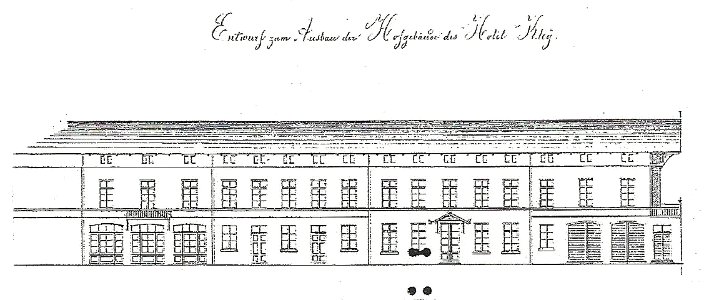 Entwurf zum Ausbau der Hofgebäude des Hotel Kley.